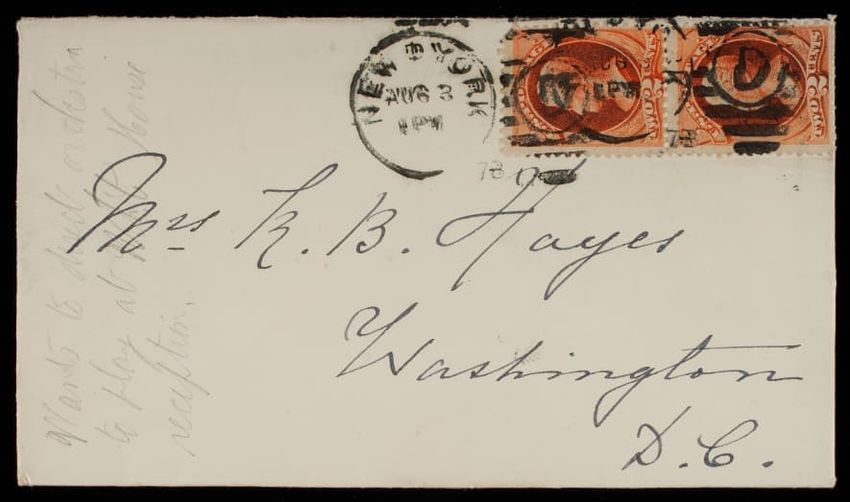 NEW YORK
AUG 3
1 PM
78
TWO CENTS
TWO CENTS
D
Mrs R. B. Hayes
Washington
D.C.
Wants to orchestra
to play at White House
reception.